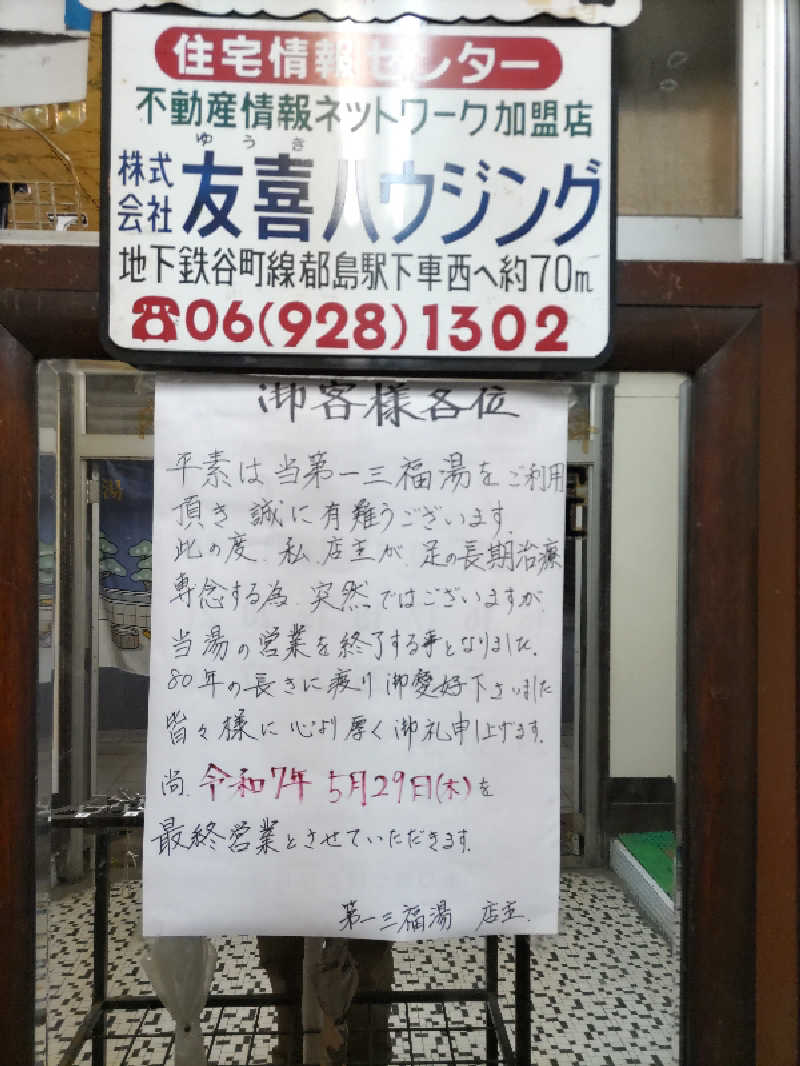 住宅情報センター
不動産情報ネットワーク加盟店
ゆうき
株式会社 友喜ハウジング
地下鉄谷町線都島駅下車西へ約70m
☎06(928)1302
御客様各位
平素は当第一三福湯をご利用
頂き誠に有難うございます。
此の度、私、店主が、足の長期治療
専念する為、突然ではございますが、
当湯の営業を終了する事となりました。
80年の長きに渡り御愛好下さいました
皆々様に心より厚く御礼申し上げます。
尚、令和7年 5月29日(木)を
最終営業とさせていただきます。
第一三福湯 店主.
湯